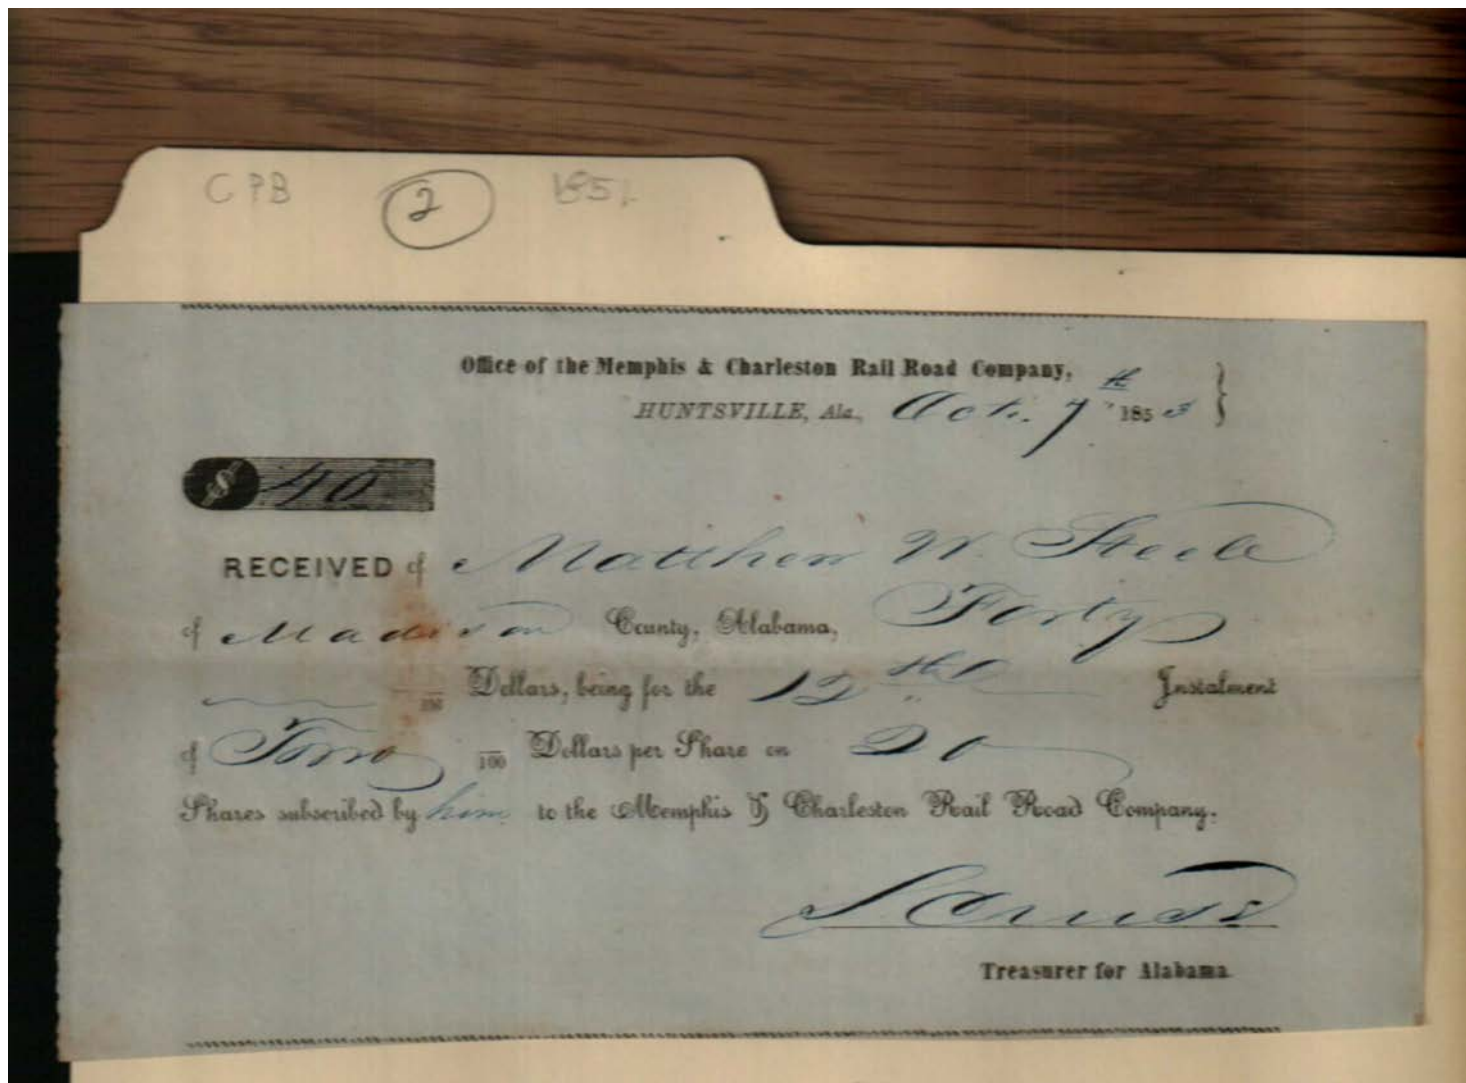 CPB 2 1851
Office of the Memphis & Charleston Rail Road Company,
HUNTSVILLE, Ala., Oct. 7th 1853
$ 40
RECEIVED of Matthew W. Steele
of Madison County, Alabama, Forty
100 Dollars, being for the 12th Instalment
of Two 100 Dollars per Share on 20
Shares subscribed by him to the Memphis & Charleston Rail Road Company.
Treasurer for Alabama.